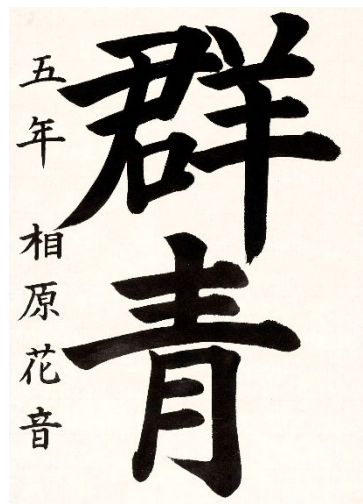 群青
五年 相原花音